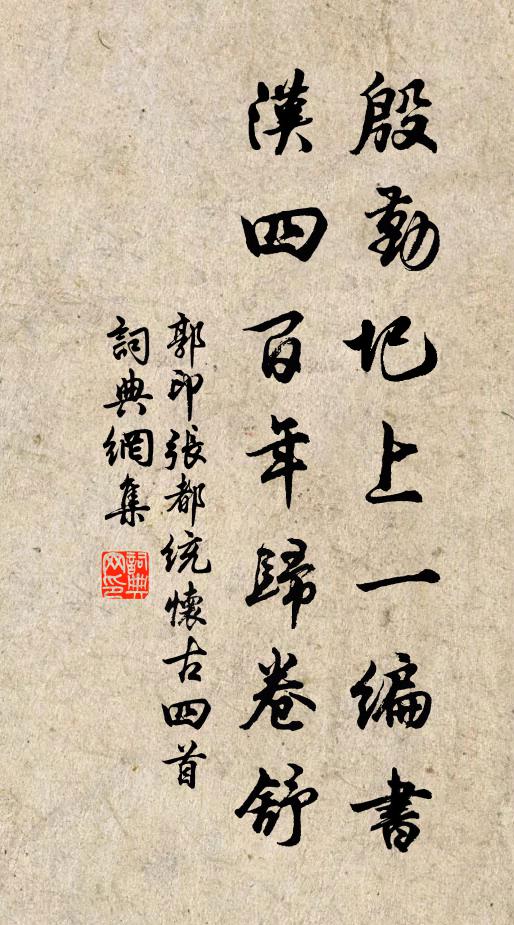 殷勤圯上一編書
漢四百年歸卷舒
郭印張都統懷古四首
詞典網集
詞典網印